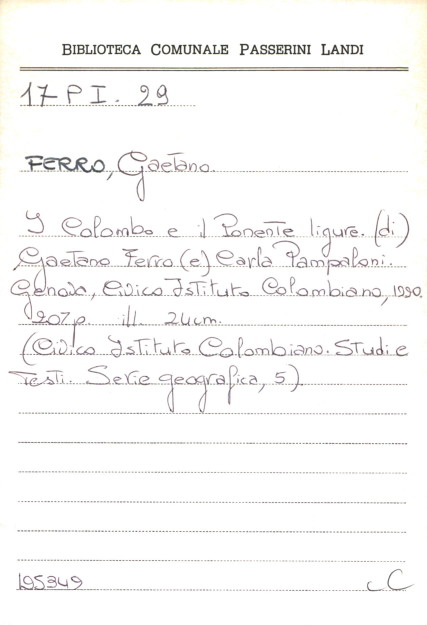 BIBLIOTECA COMUNALE PASSERINI LANDI
17 P I. 29
FERRO, Gaetano.
I Colombo e il Ponente ligure. (di)
Gaetano Ferro (e) Carla Pampaloni.
Genova, Civico Istituto Colombiano, 1990.
207 p. ill. 24 cm.
(Civico Istituto Colombiano. Studi e
Testi. Serie geografica, 5).
195349
C